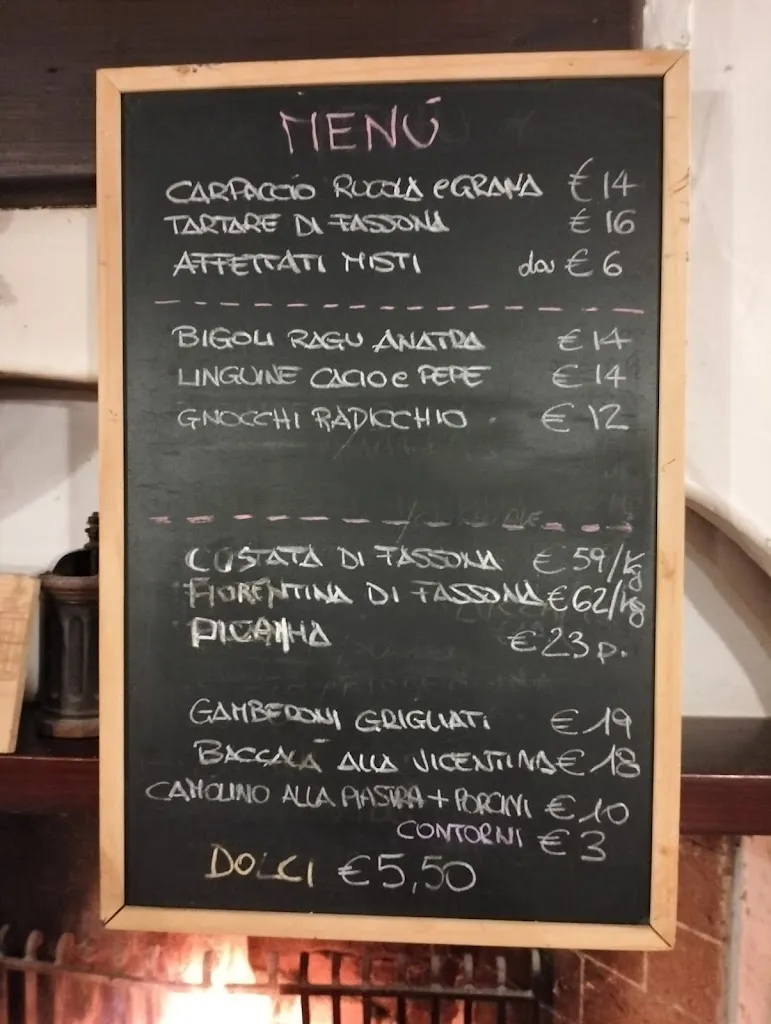 MENÚ
CARPACCIO RUCOLA e GRANA € 14
TARTARE DI FASSONA € 16
AFFETTATI MISTI da € 6
BIGOLI RAGU ANATRA € 14
LINGUINE CACIO e PEPE € 14
GNOCCHI RADICCHIO € 12
COSTATA DI FASSONA € 59/Kg
FIORENTINA DI FASSONA € 62/Kg
PICANHA € 23 p.
GAMBERONI GRIGLIATI € 19
BACCALÀ ALLA VICENTINA € 18
CAMOLINO ALLA PIASTRA + PORCINI € 10
CONTORNI € 3
DOLCI € 5,50